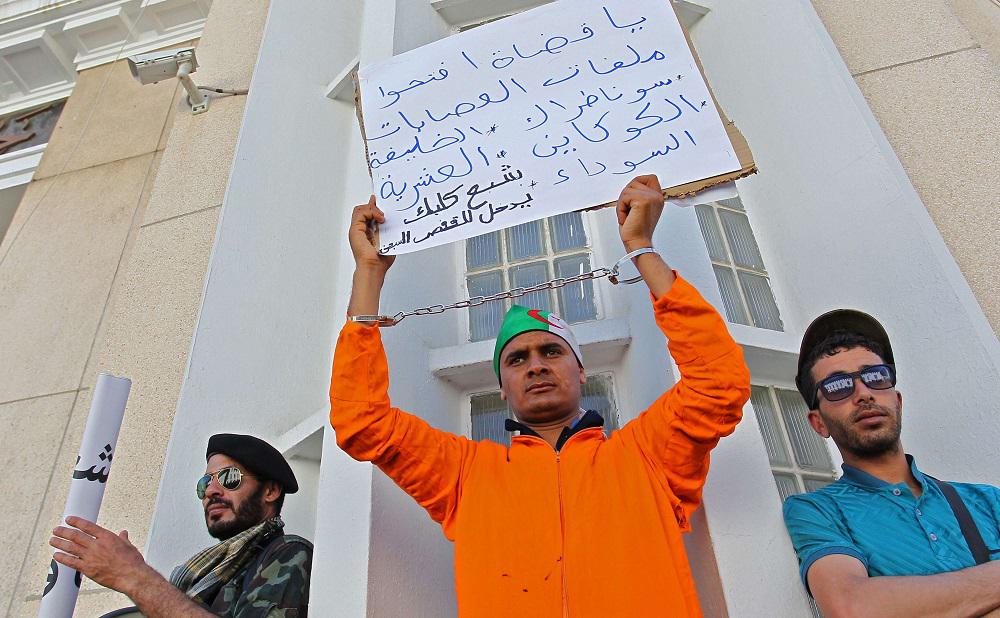 يا قضاة افتحوا
ملفات العصابات
سوناطراك * الخليفة *
الكوكاين * العشرية *
السوداء *
بشبع كلبك
يدخل للقفص